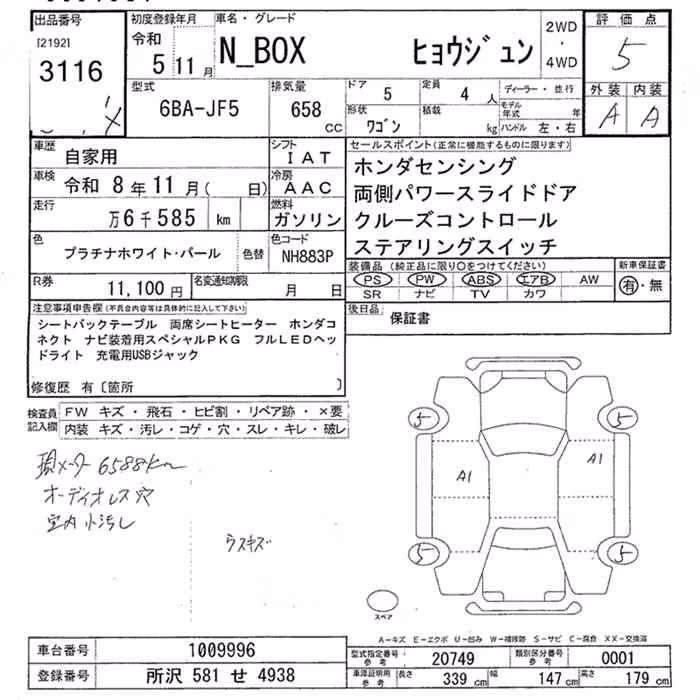 出品番号
[2192]
3116
初度登録年月
令和
5 11月
車名・グレード
N_BOX ヒョウジュン
2WD
・
4WD
評価点
5
型式
6BA-JF5
排気量
658
CC
ドア
5
定員
4 人
形状
ワゴン
積載
kg
ディーラー・並行
モデル年式 年
ハンドル 左・右
外装 内装
A A
車歴
自家用
シフト
IAT
車検
令和 8年11月( 日)
冷房
AAC
走行
万6千585 km
燃料
ガソリン
色
プラチナホワイト・パール
色替
色コード
NH883P
R券
11,100円
名変通知期限
月 日
セールスポイント(正常に機能するものに限ります)
ホンダセンシング
両側パワースライドドア
クルーズコントロール
ステアリングスイッチ
装備品(純正品に限り○をつけてください)
PS PW ABS エアB AW
SR ナビ TV カワ
新車保証書
有・無
後日品
保証書
注意事項申告欄(不具合内容等は具体的に記入して下さい)
シートバックテーブル 両席シートヒーター ホンダコ
ネクト ナビ装着用スペシャルPKG フルLEDヘッ
ドライト 充電用USBジャック
修復歴 有〔箇所 〕
検査員記入欄
FW キズ・飛石・ヒビ割・リペア跡・×要
内装 キズ・汚レ・コゲ・穴・スレ・キレ・破レ
現メーター 6588km
オーディオレス穴
室内小汚し
うスキズ
5 5
A1 A1
5 5
スペア
A−キズ E−エクボ U−凹み W−補修跡 S−サビ C−腐食 XX−交換済
車台番号
1009996
登録番号
所沢 581 せ 4938
型式指定番号
参考
20749
類別区分番号
参考
0001
車庫証明用
参考
長さ 339 cm
幅 147 cm
高さ 179 cm